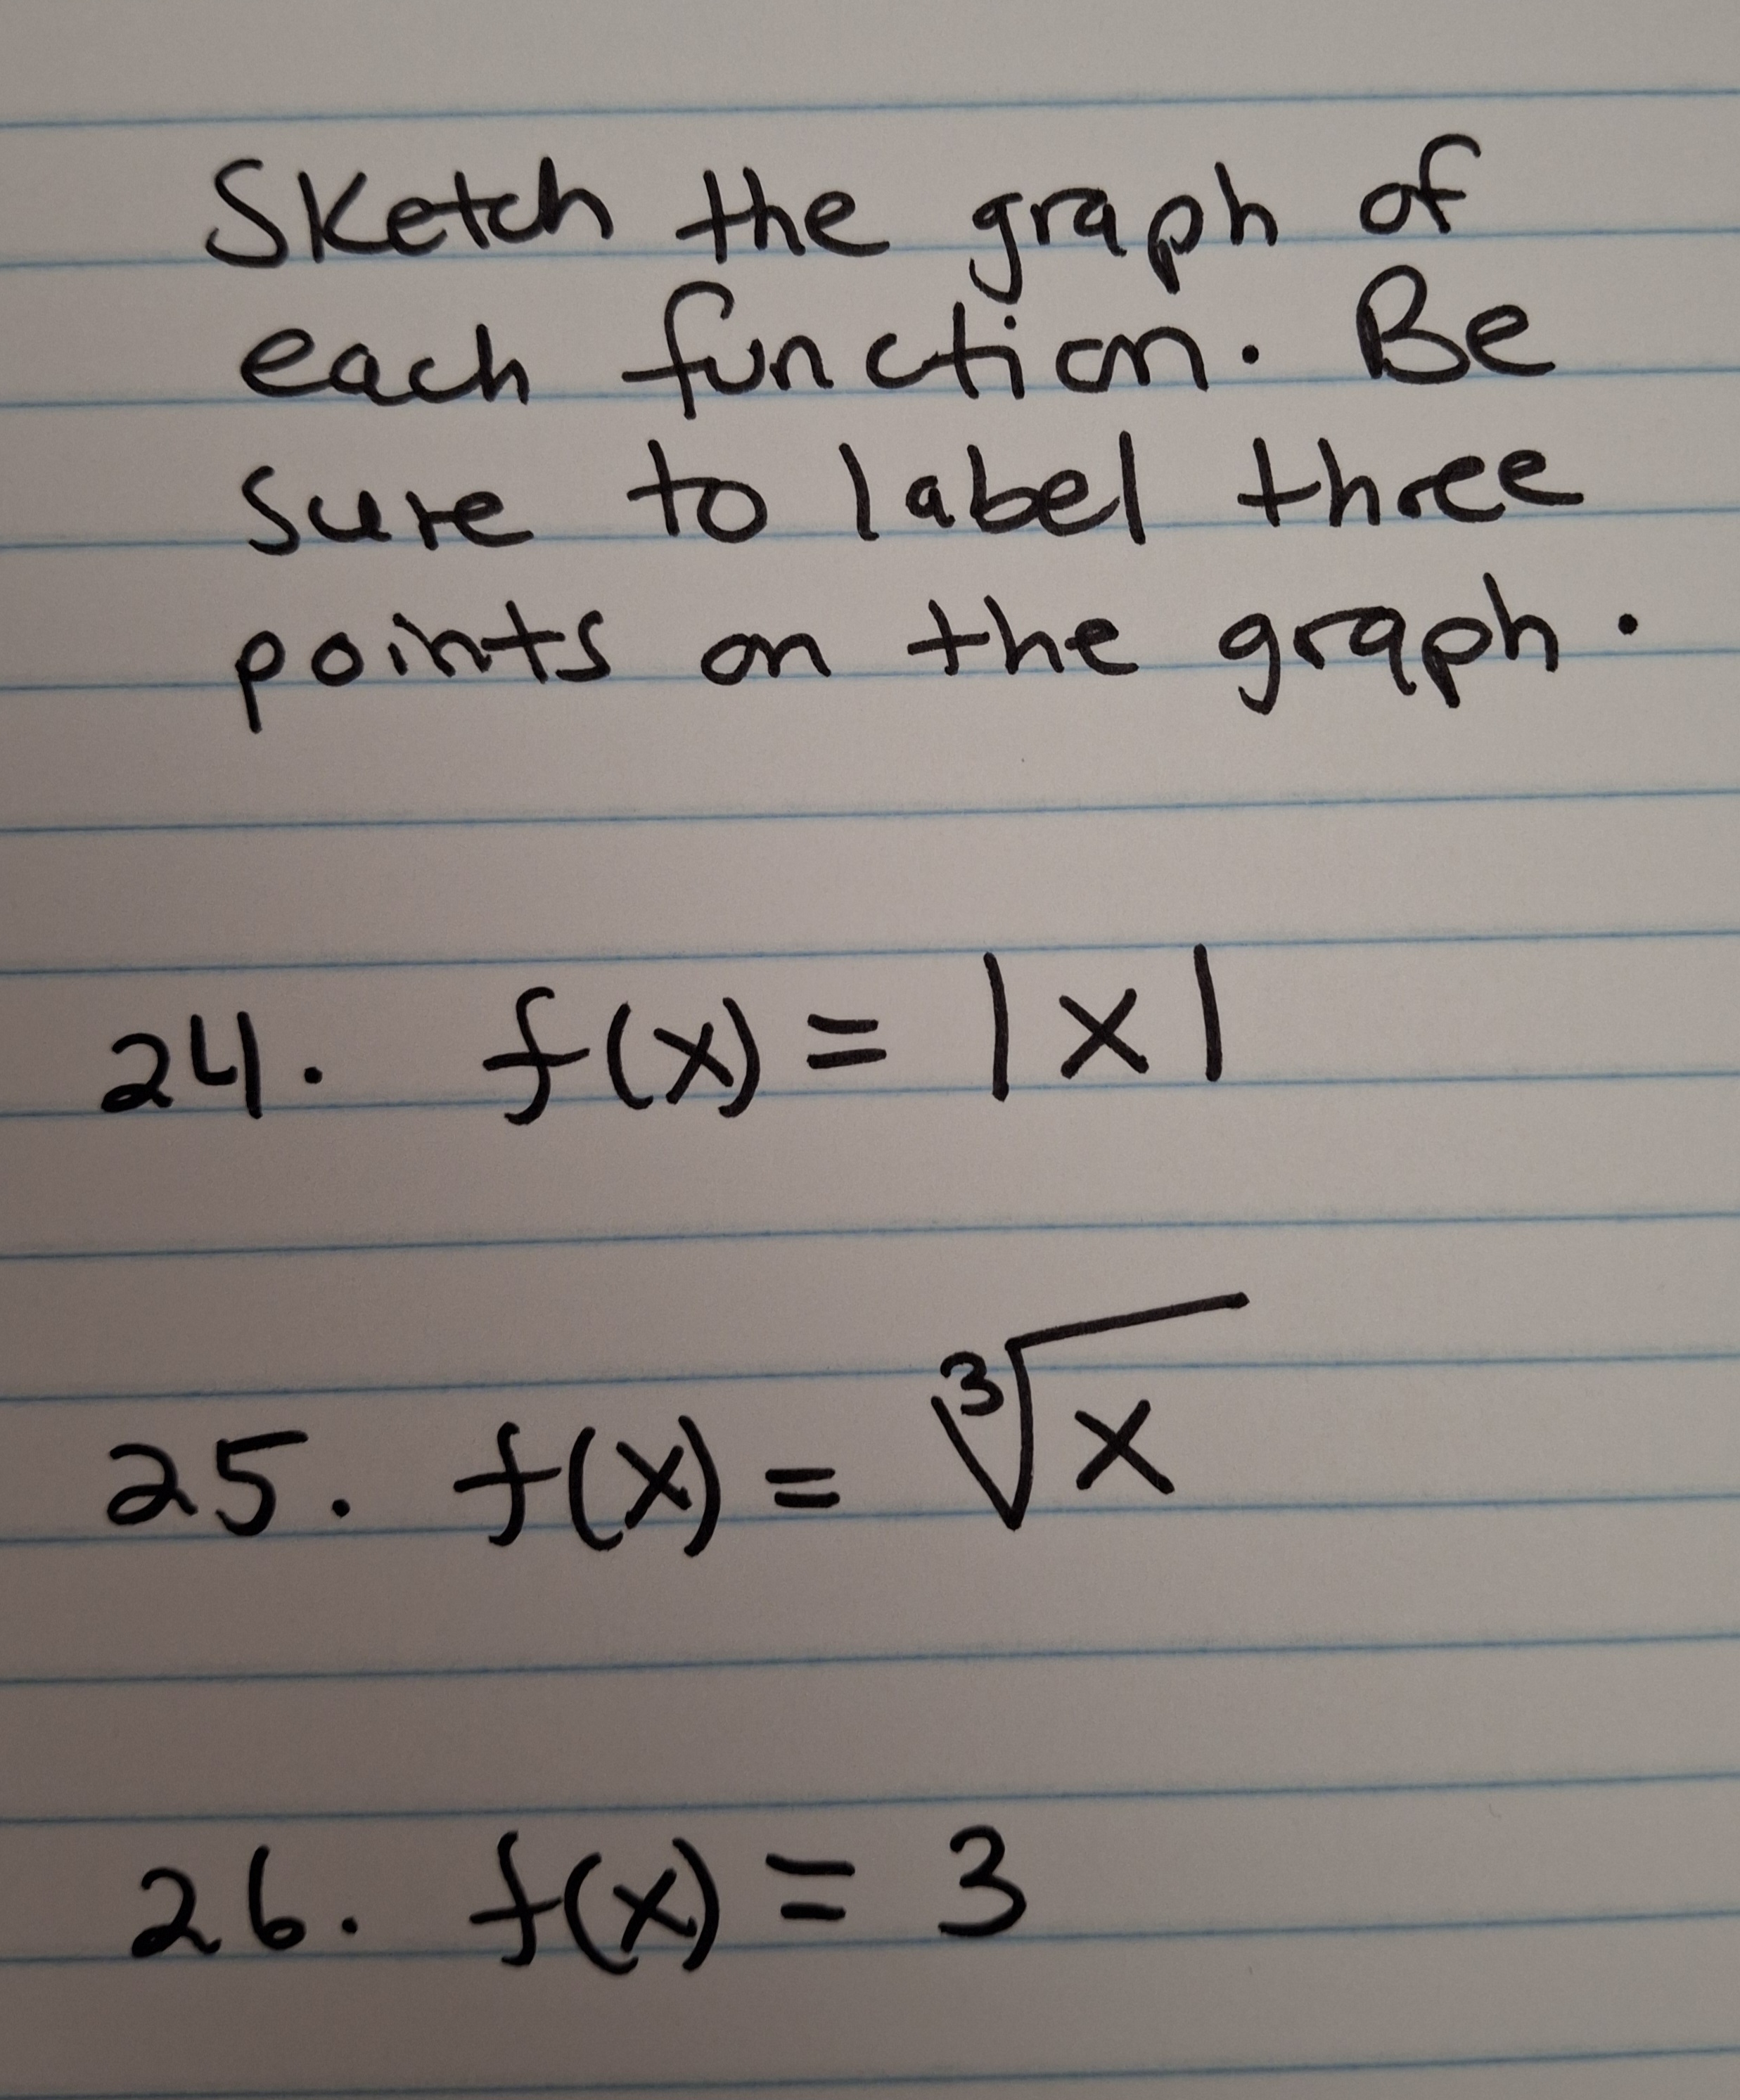 Sketch the graph of
each function. Be
sure to label three
points on the graph.
24. f(x) = |x|
25. f(x) = ∛x
26. f(x) = 3